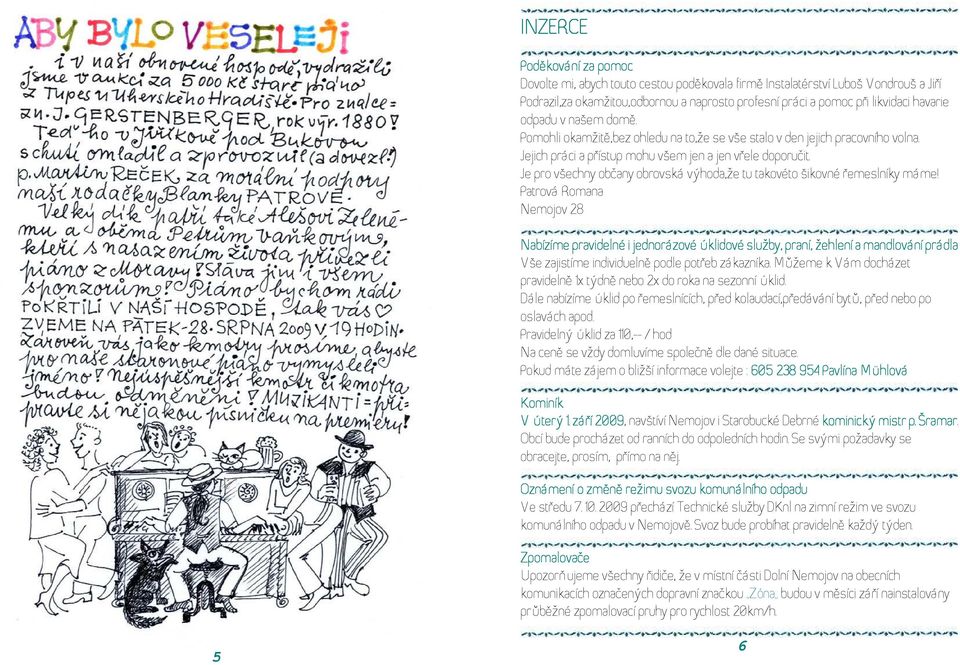 ABY BYLO VESELEJI
i v naší obnovené hospodě, vydražili
jsme v aukci za 5 000 Kč staré piáno
z Tupes u Uherského Hradiště. Pro znalce =
zn. J. GERSTENBERGER, rok výr. 1880!
Teď ho v Jiříkově pod Bukovou
s chutí omladil a zprovoznil (a dovezl!)
p. Martin ŘEČEK, za morální podpory
naší rodačky Blanky PATROVÉ.
Velký dík patří také Alešovi Zelené-
mu a oběma Petrům Vaňkovým,
kteří s nasazením života přivezli
piáno z Moravy! Sláva jim i všem
sponzorům! Piáno bychom rádi
POKŘTILI V NAŠÍ HOSPODĚ, tak vás
ZVEME NA PÁTEK - 28. SRPNA 2009 V 19 HODIN.
Zároveň vás, jako kmotry prosíme, abyste
pro naše staronové piáno vymysleli
jméno! Nejúspěšnější kmotr či kmotra
budou odměněni! MUZIKANTI = při-
pravte si nějakou písničku na premiéru!
5
INZERCE
Poděkování za pomoc
Dovolte mi, abych touto cestou poděkovala firmě Instalatérství Luboš Vondrouš a Jiří
Podrazil,za okamžitou,odbornou a naprosto profesní práci a pomoc při likvidaci havarie
odpadu v našem domě.
Pomohli okamžitě,bez ohledu na to,že se vše stalo v den jejich pracovního volna.
Jejich práci a přístup mohu všem jen a jen vřele doporučit.
Je pro všechny občany obrovská výhoda,že tu takovéto šikovné řemeslníky máme!
Patrová Romana
Nemojov 28
Nabízíme pravidelné i jednorázové úklidové služby, praní, žehlení a mandlování prádla
Vše zajistíme individuelně podle potřeb zákazníka. Můžeme k Vám docházet
pravidelně 1x týdně nebo 2x do roka na sezonní úklid.
Dále nabízíme úklid po řemeslnících, před kolaudací,předávání bytů, před nebo po
oslavách apod.
Pravidelný úklid za 110,-- / hod
Na ceně se vždy domluvíme společně dle dané situace.
Pokud máte zájem o bližší informace volejte : 605 238 954 Pavlína Mühlová
Kominík
V úterý 1. září 2009, navštíví Nemojov i Starobucké Debrné kominický mistr p. Šramar.
Obcí bude procházet od ranních do odpoledních hodin. Se svými požadavky se
obracejte, prosím, přímo na něj.
Oznámení o změně režimu svozu komunálního odpadu
Ve středu 7. 10. 2009 přechází Technické služby DKnL na zimní režim ve svozu
komunálního odpadu v Nemojově. Svoz bude probíhat pravidelně každý týden.
Zpomalovače
Upozorňujeme všechny řidiče, že v místní části Dolní Nemojov na obecních
komunikacích označených dopravní značkou „Zóna„ budou v měsíci září nainstalovány
průběžné zpomalovací pruhy pro rychlost 20km/h.
6